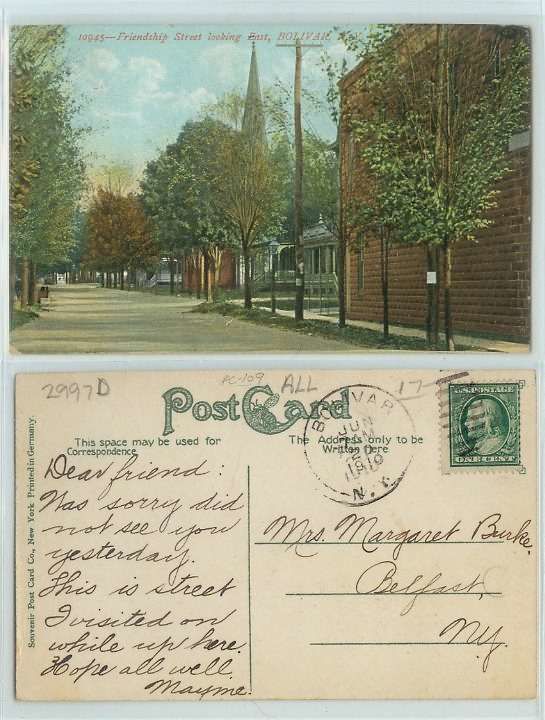 10945—Friendship Street looking East, BOLIVAR, N.Y.
2997D
PC-109
ALL
17
Post Card
This space may be used for
Correspondence
The Address only to be
Written Here
BOLIVAR
JUN
N.Y.
U.S. POSTAGE
ONE CENT
Souvenir Post Card Co., New York Printed in Germany.
Dear friend:
Was sorry did
not see you
yesterday.
This is street
I visited on
while up here.
Hope all well.
Mayme.
Mrs. Margaret Burke,
Belfast,
NY.